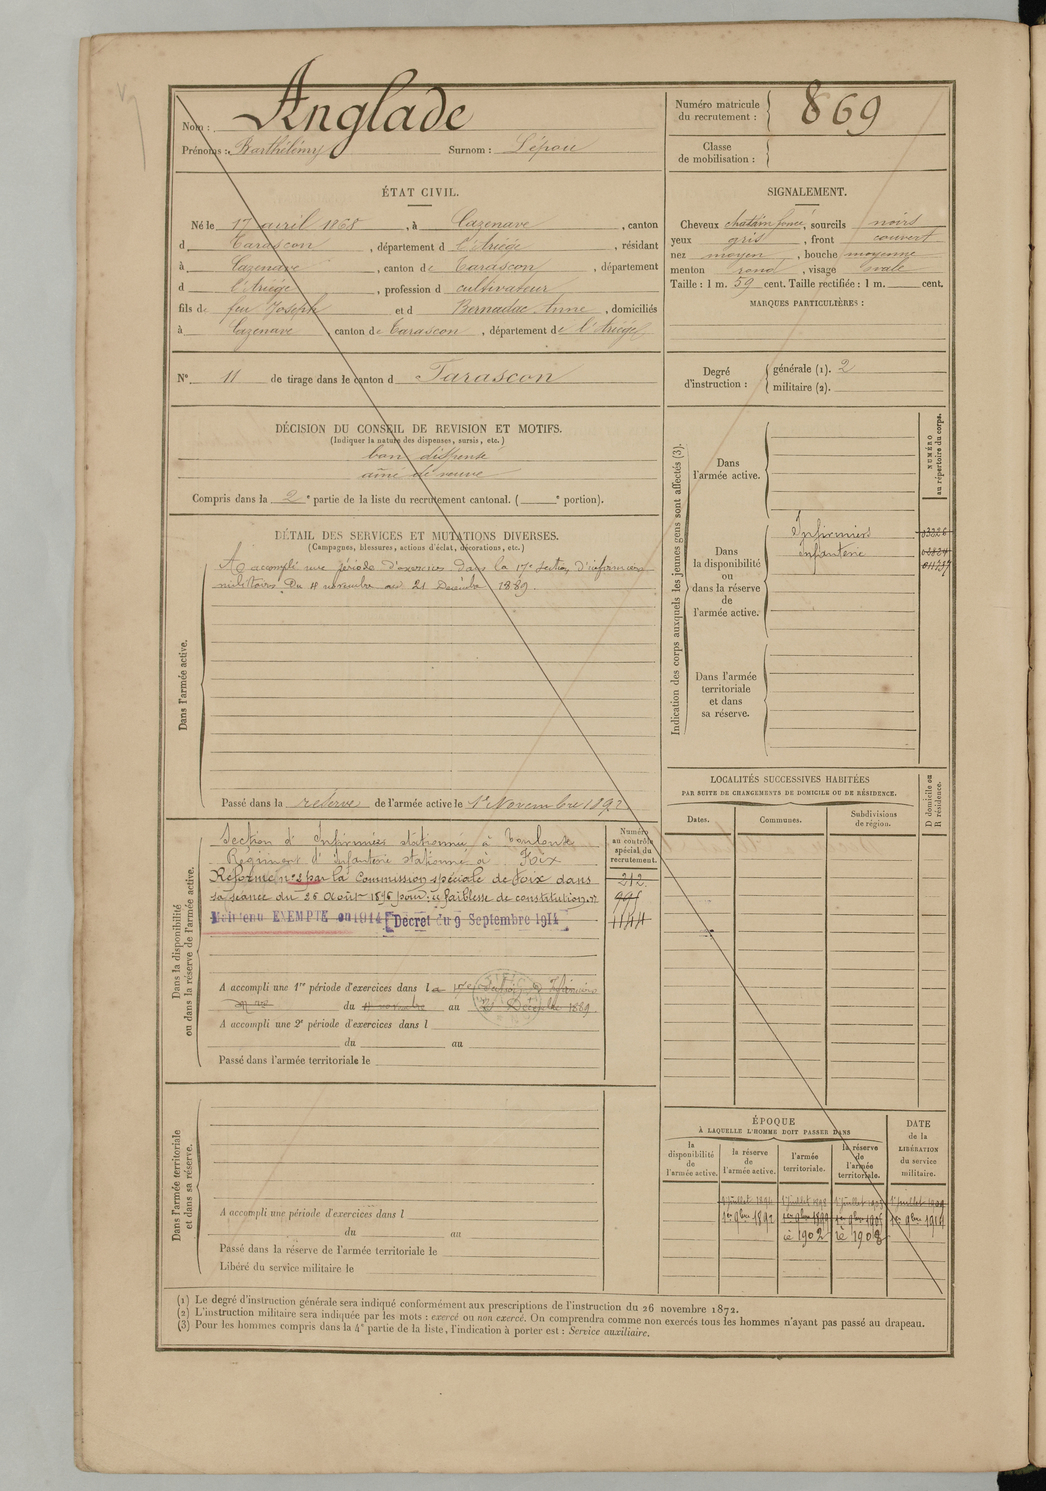 Nom : Anglade
Prénoms : Barthélémy Surnom : Lépou
Numéro matricule
du recrutement : 869
Classe
de mobilisation :
ÉTAT CIVIL.
Né le 17 avril 1868, à Cazenave, canton
d Tarascon, département d l'Ariége, résidant
à Cazenave, canton de Tarascon, département
d l'Ariége, profession d cultivateur
fils de feu Joseph et d Bernadac Anne, domiciliés
à Cazenave, canton de Tarascon, département de l'Ariége
SIGNALEMENT.
Cheveux chatain foncé, sourcils noirs
yeux gris, front couvert
nez moyen, bouche moyenne
menton rond, visage ovale
Taille : 1 m. 59 cent. Taille rectifiée : 1 m. cent.
MARQUES PARTICULIÈRES :
N° 11 de tirage dans le canton d Tarascon
Degré
d'instruction :
générale (1). 2
militaire (2).
DÉCISION DU CONSEIL DE REVISION ET MOTIFS.
(Indiquer la nature des dispenses, sursis, etc.)
bon dispensé
ainé de veuve
Compris dans la 2e partie de la liste du recrutement cantonal. ( e portion).
DÉTAIL DES SERVICES ET MUTATIONS DIVERSES.
(Campagnes, blessures, actions d'éclat, décorations, etc.)
Dans l'armée active.
A accompli une période d'exercices dans la 17e section d'infirmiers
militaires Du 11 novembre au 21 Décembre 1889.
Passé dans la reserve de l'armée active le 1er Novembre 1892
Indication des corps auxquels les jeunes gens sont affectés (3).
NUMÉRO
au répertoire du corps.
Dans
l'armée active.
Dans
la disponibilité
ou
dans la réserve
de
l'armée active.
Infirmiers
infanterie
Dans l'armée
territoriale
et dans
sa réserve.
LOCALITÉS SUCCESSIVES HABITÉES
PAR SUITE DE CHANGEMENTS DE DOMICILE OU DE RÉSIDENCE.
D domicile ou
R résidence.
Dates.
Communes.
Subdivisions
de région.
Dans la disponibilité
ou dans la réserve de l'armée active.
Numéro
au contrôle
spécial du
recrutement.
Section d'Infirmiers stationnée à Toulouse 212
Régiment d'Infanterie stationné à Foix 995
Réformé n°2 par la Commission spéciale de Foix dans
sa séance du 26 Août 1896 pour : faiblesse de constitution. 1144
Maintenu EXEMPTE en 1914 [Décret du 9 Septembre 1914]
A accompli une 1re période d'exercices dans la 17e Section d'Infirmiers
du 11 novembre au 21 Décembre 1889
A accompli une 2e période d'exercices dans l
du au
Passé dans l'armée territoriale le
Dans l'armée territoriale
et dans sa réserve.
A accompli une période d'exercices dans l
du au
Passé dans la réserve de l'armée territoriale le
Libéré du service militaire le
ÉPOQUE
À LAQUELLE L'HOMME DOIT PASSER DANS
DATE
de la
LIBÉRATION
du service
militaire.
la
disponibilité
de
l'armée active.
la réserve
de
l'armée active.
l'armée
territoriale.
la réserve
de
l'armée
territoriale.
1er 9bre 1892 1er 9bre 1899 1er 9bre 1905 1er 9bre 1914
1902 1908
(1) Le degré d'instruction générale sera indiqué conformément aux prescriptions de l'instruction du 26 novembre 1872.
(2) L'instruction militaire sera indiquée par les mots : exercé ou non exercé. On comprendra comme non exercés tous les hommes n'ayant pas passé au drapeau.
(3) Pour les hommes compris dans la 4e partie de la liste, l'indication à porter est : Service auxiliaire.